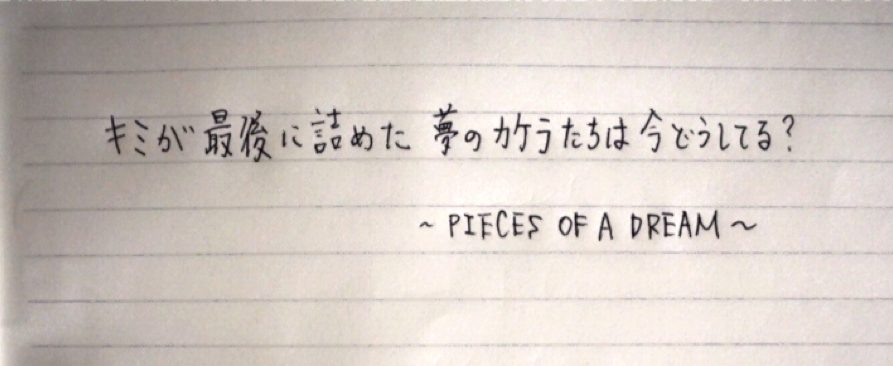 キミが最後に詰めた 夢のカケラたちは今どうしてる?
~ PIECES OF A DREAM ~